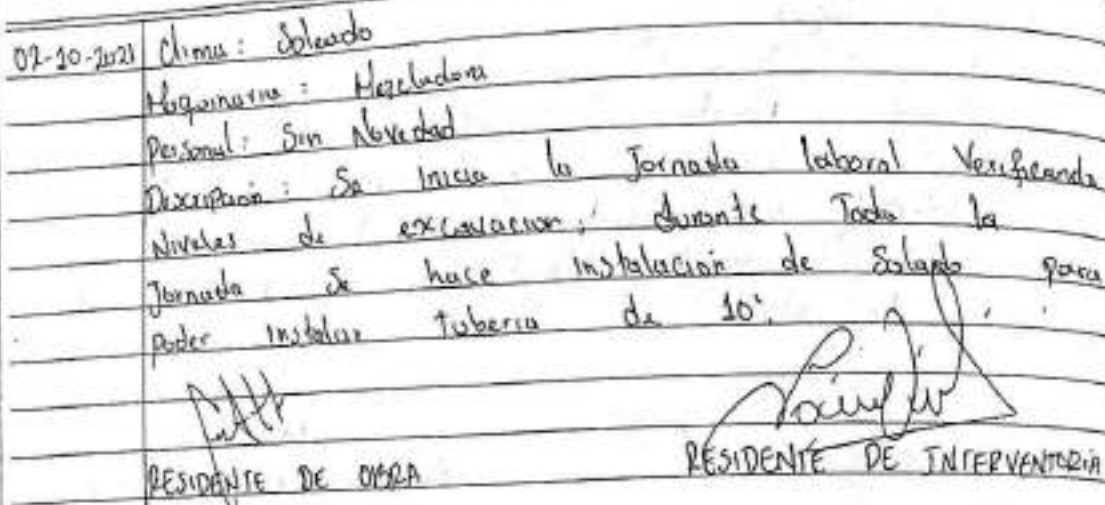 02-10-2021 Clima: Soleado
Maquinaria: Mezcladora
Personal: Sin Novedad
Descripción: Se Inicia la Jornada laboral Verificando
Niveles de excavacion; durante Toda la
Jornada Se hace instalación de Solado para
poder instalar tuberia de 10".
RESIDENTE DE OBRA
RESIDENTE DE INTERVENTORIA